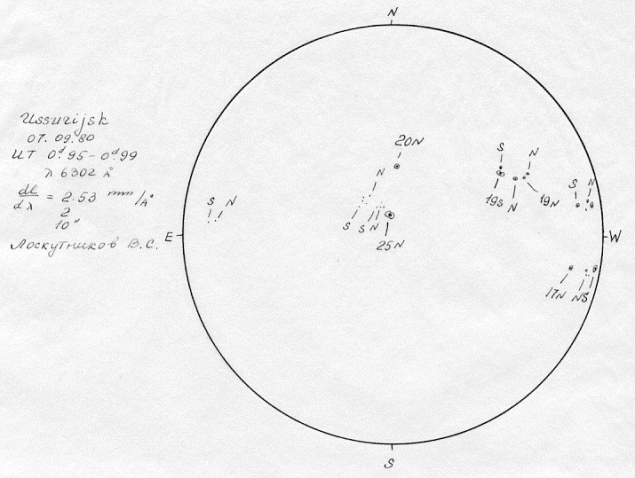 N
Ussurijsk
07.09.80
UT 0ᵈ.95-0ᵈ.99
λ 6302 Å
dl/dλ = 2.53 mm/Å
2
10"
Лоскутников В.С.
20N
S N
N
19S N 19N
S N
S N
S S N
25N
E
W
17N N S
S